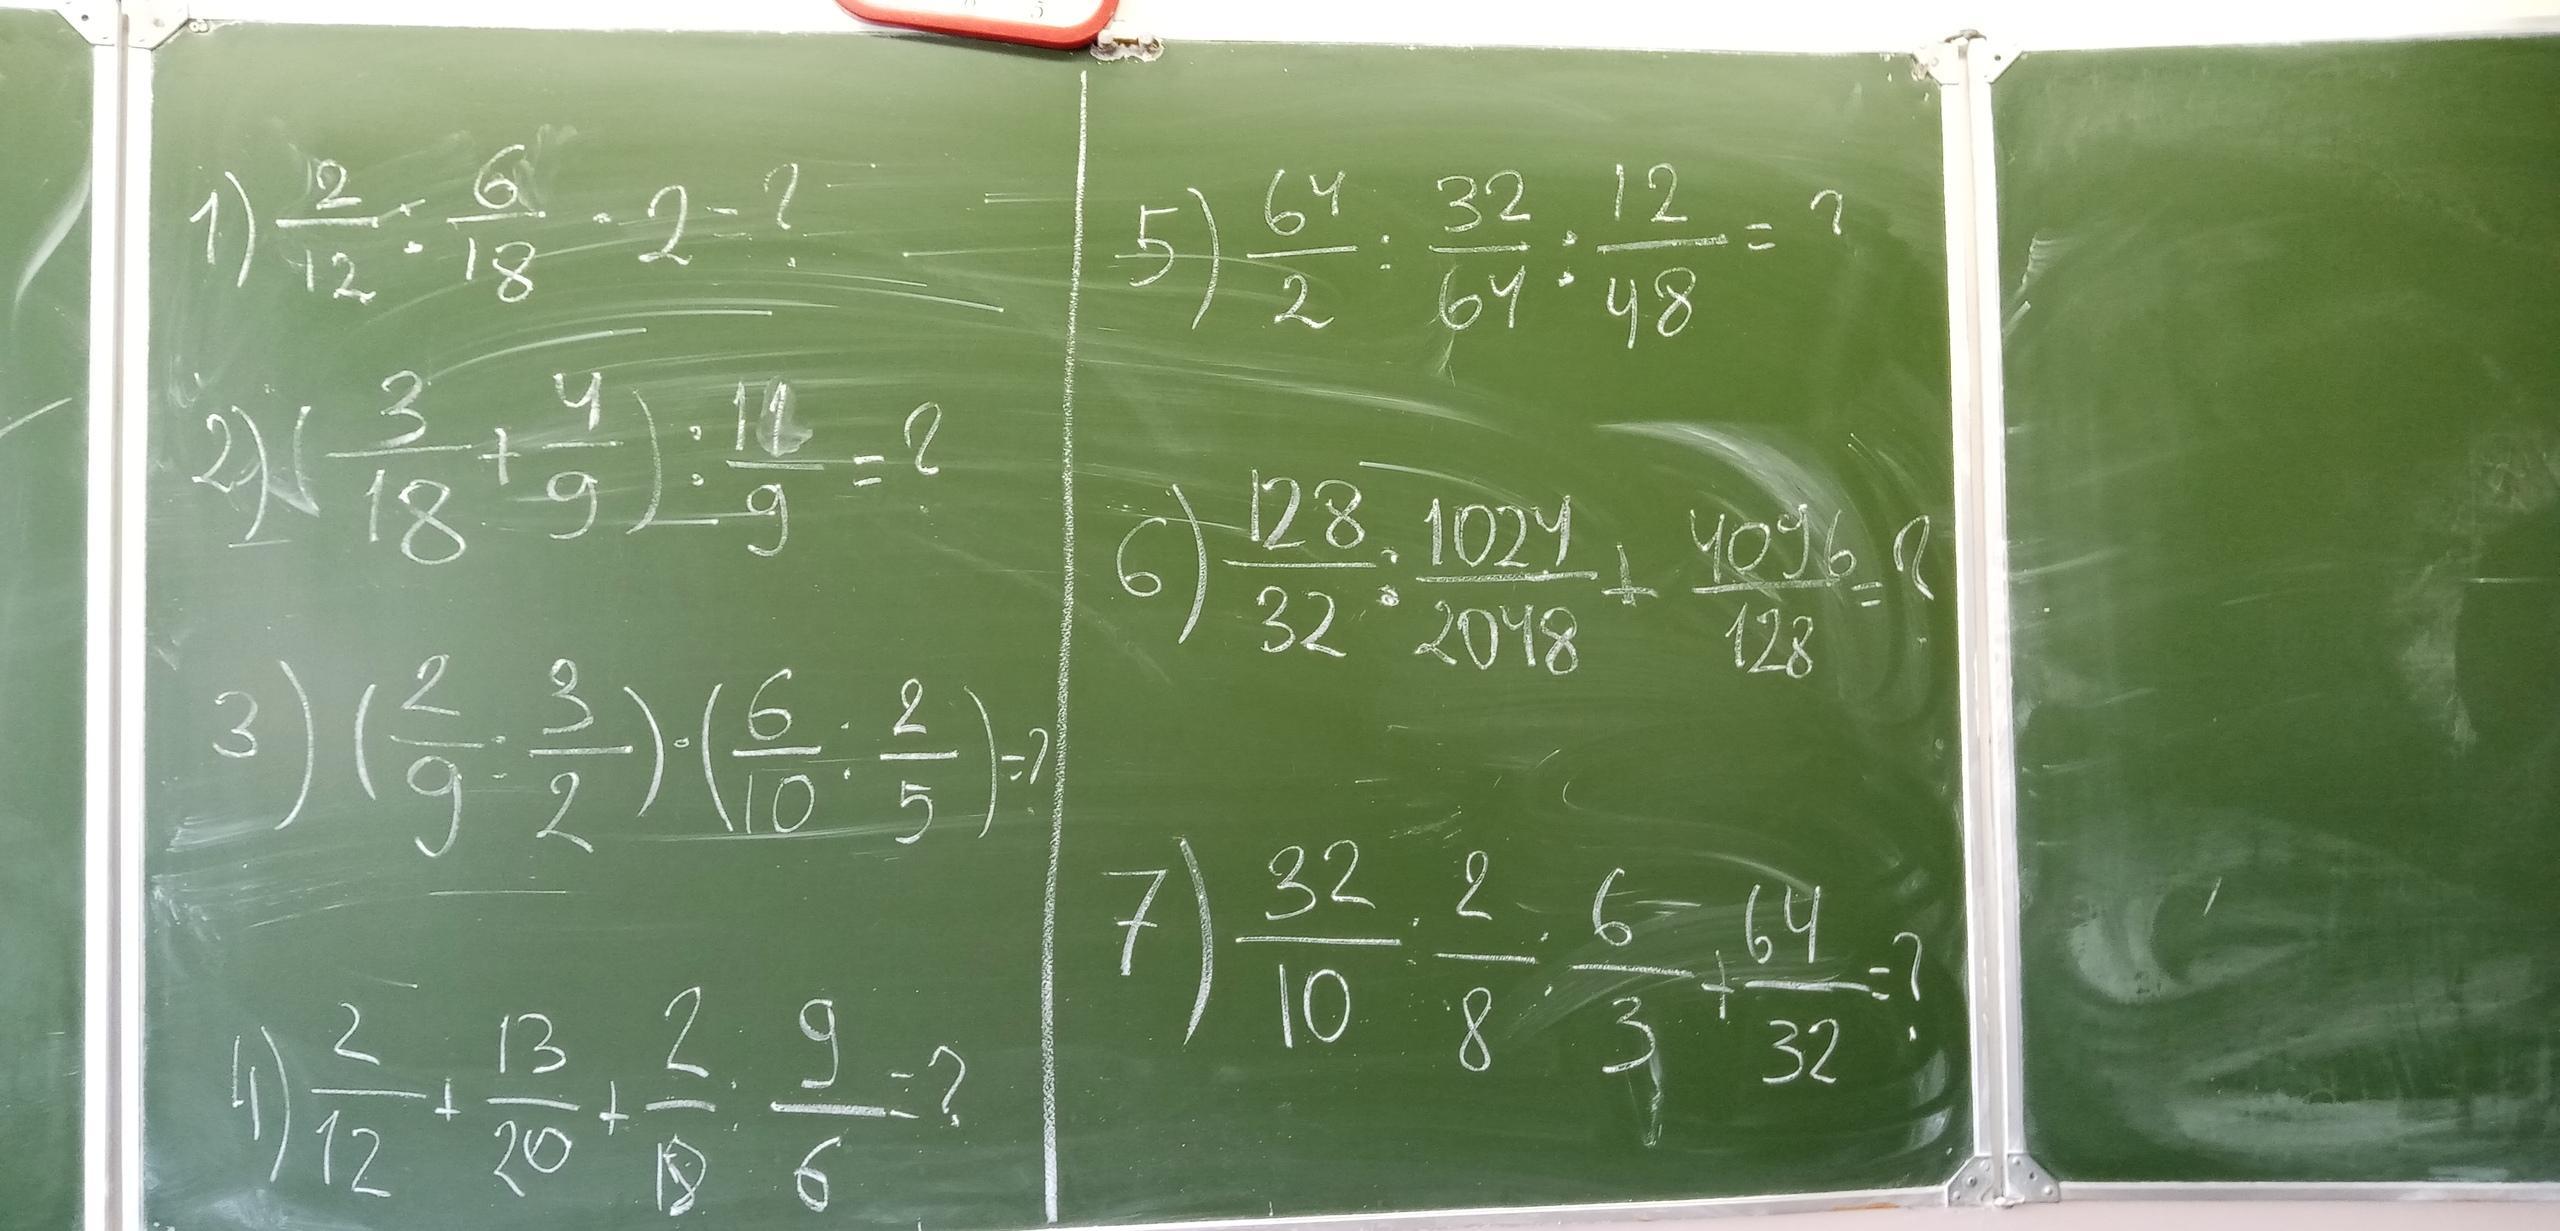 1) 2/12 : 6/18 · 2 = ?
2) (3/18 + 4/9) : 11/9 = ?
3) (2/9 : 3/2) · (6/10 : 2/5) = ?
4) 2/12 + 13/20 + 2/18 : 9/6 = ?
5) 64/2 : 32/64 : 12/48 = ?
6) 128/32 : 1024/2048 + 4096/128 = ?
7) 32/10 : 2/8 : 6/3 + 64/32 = ?